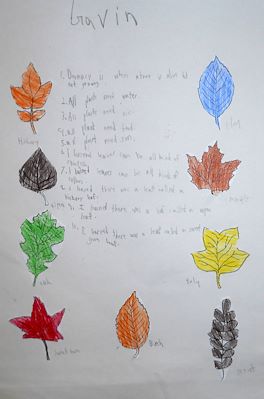 Gavin
1. Dormacy is when
not growing
2. All plants need water.
3. All plants need air.
4. All plants need food.
5. All plants need soil.
6. I learned leaves can be all kind of
7. I learned leaves can be all kind of
8. I learned there was a leaf called a
hickory leaf.
9. I learned there was a leaf called a aspen
leaf.
10. I learned there was a leaf called a sweet
gum leaf.
Hickory
Elm
aspen
maple
oak
Tulip
sweet gum
Birch